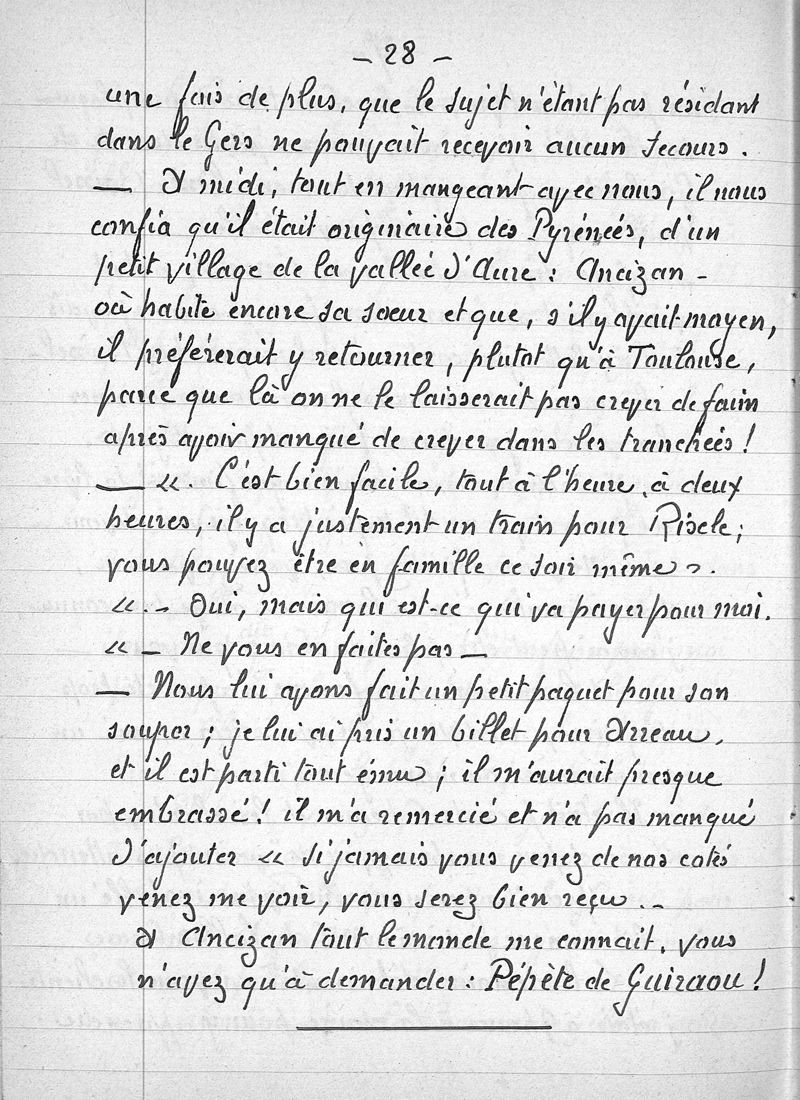 – 28 –
une fois de plus, que le sujet n'étant pas résidant
dans le Gers ne pouvait recevoir aucun secours.
— A midi, tout en mangeant avec nous, il nous
confia qu'il était originaire des Pyrénées, d'un
petit village de la vallée d'Aure : Ancizan -
où habite encore sa sœur et que, s'il y avait moyen,
il préférerait y retourner, plutot qu'à Toulouse,
parce que là on ne le laisserait pas crever de faim
après avoir manqué de crever dans les tranchées !
— «. C'est bien facile, tout à l'heure, à deux
heures, il y a justement un train pour Riscle ;
vous pouvez être en famille ce soir même ».
«.- Oui, mais qui est-ce qui va payer pour moi.
« – Ne vous en faites pas —
— Nous lui avons fait un petit paquet pour son
souper ; je lui ai pris un billet pour Arreau,
et il est parti tout ému ; il m'aurait presque
embrassé ! il m'a remercié et n'a pas manqué
d'ajouter « si jamais vous venez de nos cotés
venez me voir, vous serez bien reçu .-
A Ancizan tout le monde me connait, vous
n'avez qu'à demander : Pépète de Guiraou !